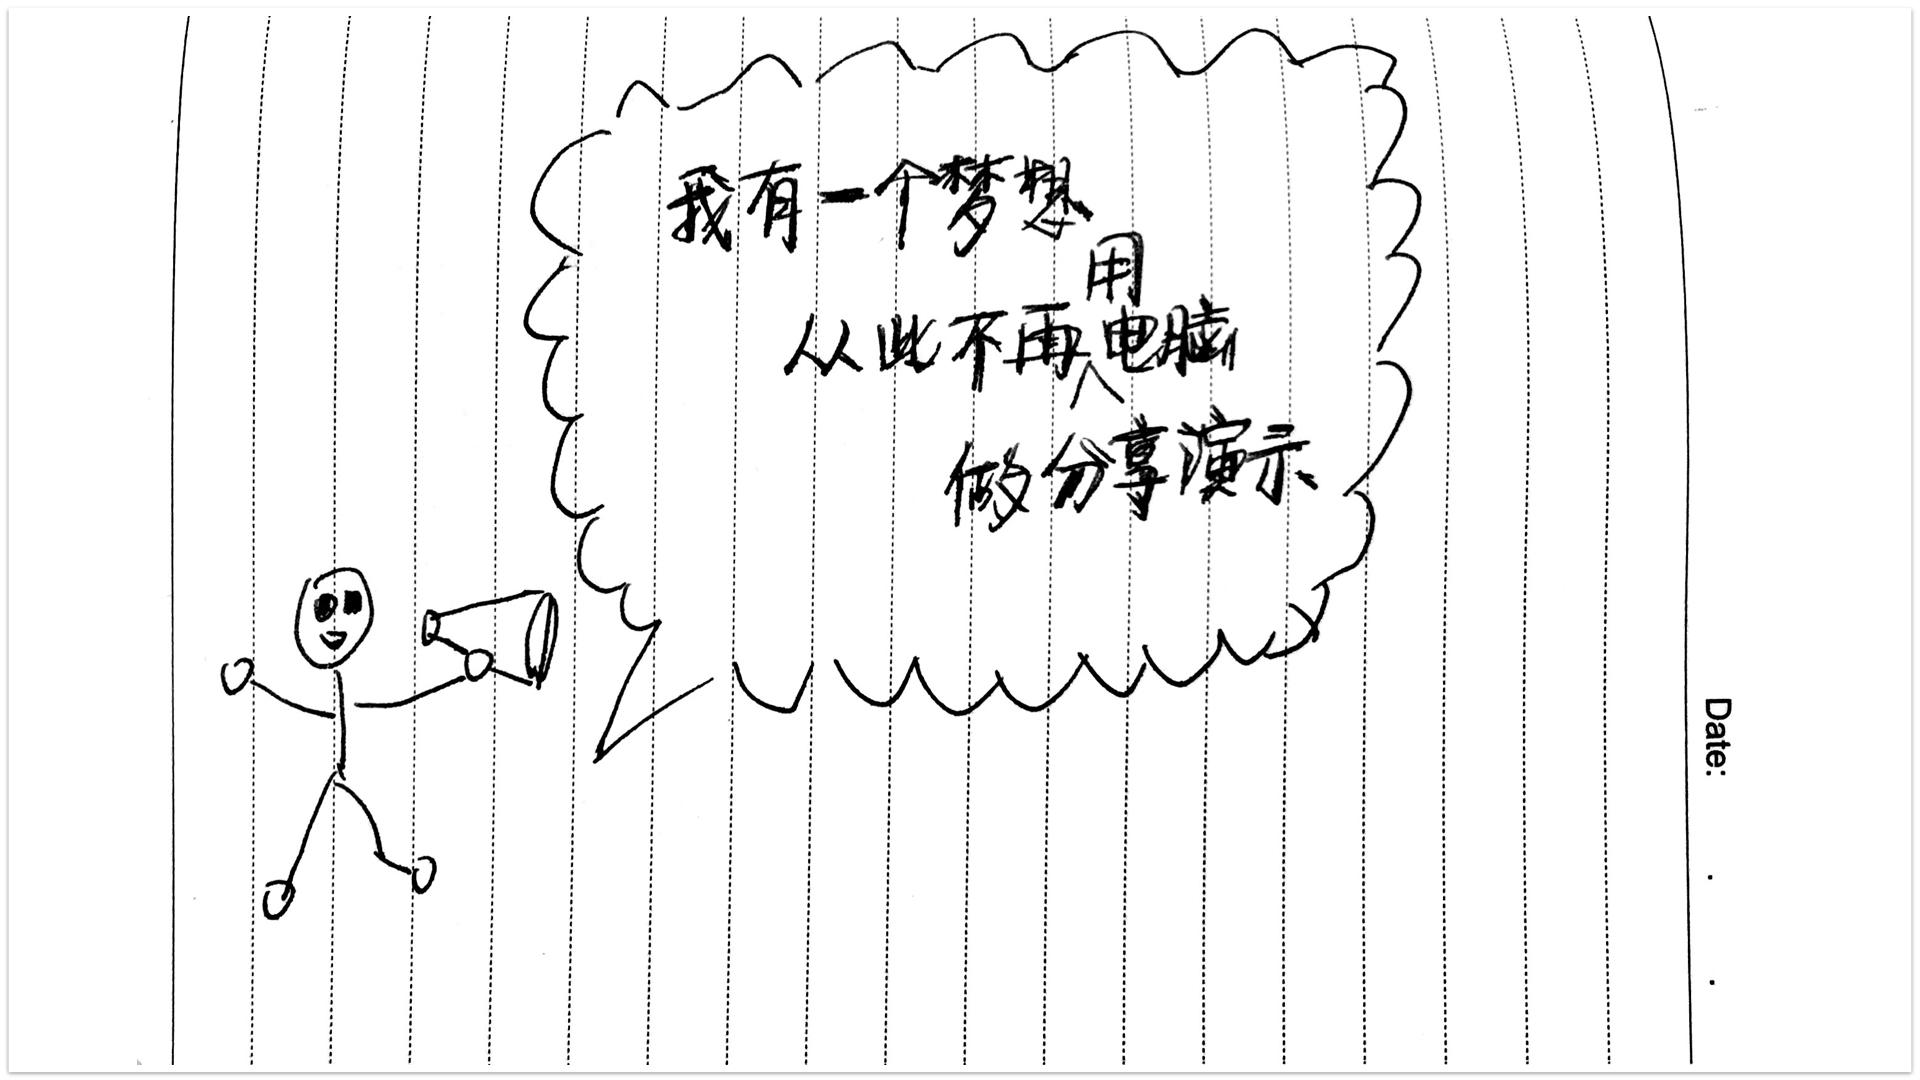 我有一个梦想
从此不再用电脑
做分享演示
Date: